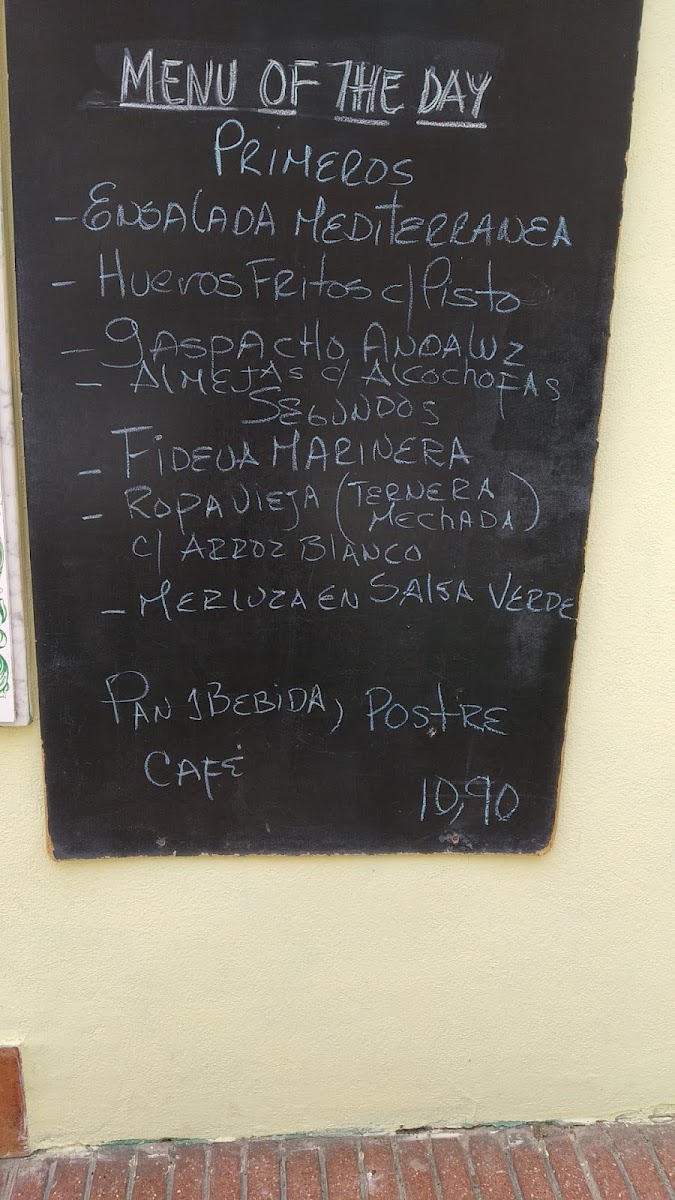 MENU OF THE DAY
PRIMEROS
- ENSALADA MEDITERRANEA
- HUEVOS FRITOS c/ PISTO
- GASPACHO ANDALUZ
- ALMEJAS c/ ALCOCHOFAS
SEGUNDOS
- FIDEUA MARINERA
- ROPA VIEJA (TERNERA MECHADA)
c/ ARROZ BLANCO
- MERLUZA EN SALSA VERDE
PAN 1 BEBIDA, POSTRE
CAFÉ
10,90